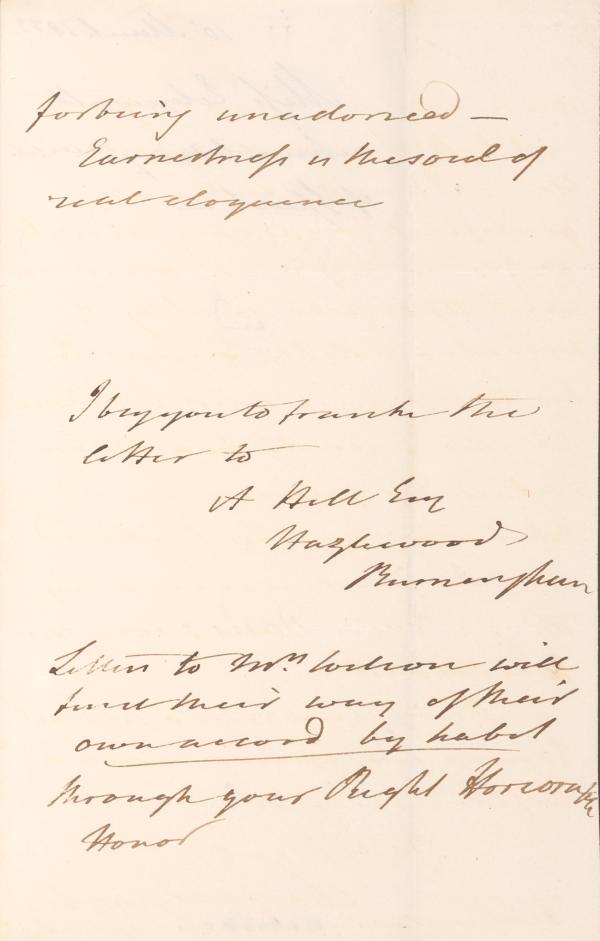 for being unadorned —
Earnestness is the soul of
real eloquence
I beg you to frank the
letter to
A Hill Esq
Hazlewood
Birmingham
Letters to Mrs Wilson will
find their way of their
own accord by habit
through your Right Honorable
Honor